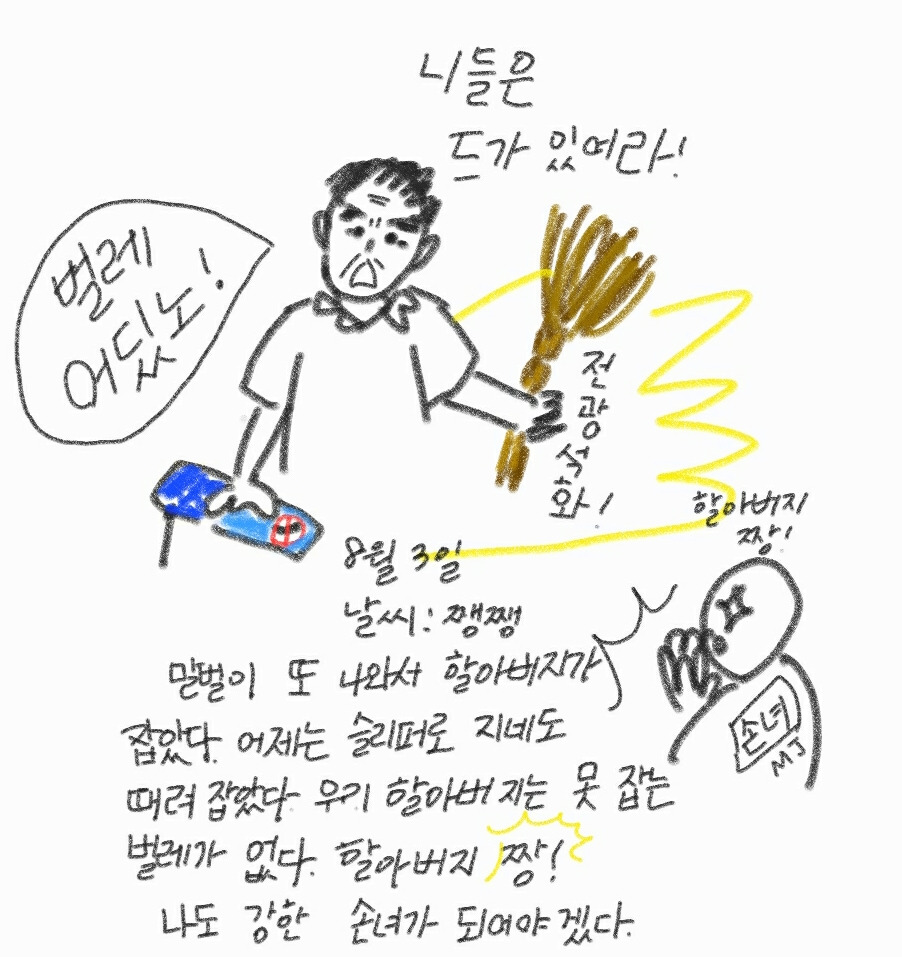 니들은
드가 있어라!
벌레
어딨노!
전광석화!
할아버지
짱!
손녀
MJ
8월 3일
날씨: 쨍쨍
말벌이 또 나와서 할아버지가
잡았다. 어제는 슬리퍼로 지네도
때려 잡았다. 우리 할아버지는 못 잡는
벌레가 없다. 할아버지 짱!
나도 강한 손녀가 되어야겠다.